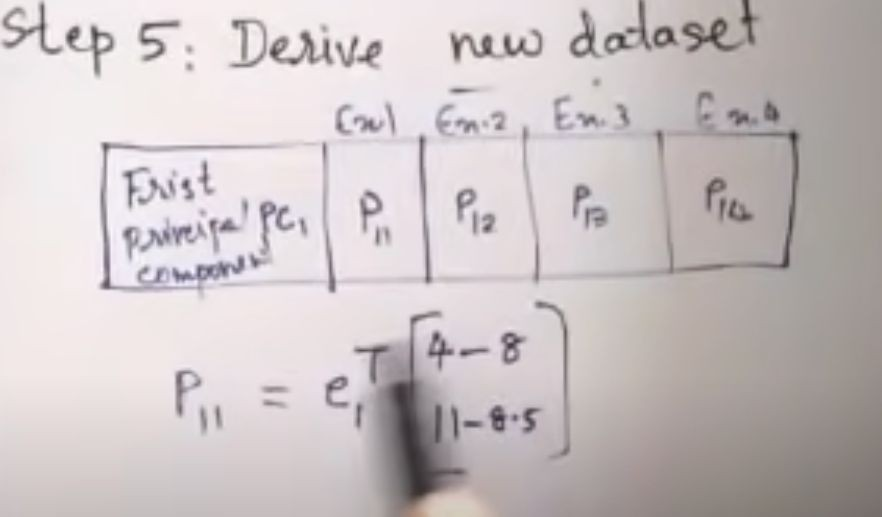 Step 5: Derive new dataset
Ex.1 Ex.2 Ex.3 Ex.4
Frist
principal PC₁
component
P₁₁ P₁₂ P₁₃ P₁₄
P₁₁ = e₁ᵀ [4-8
11-8.5]